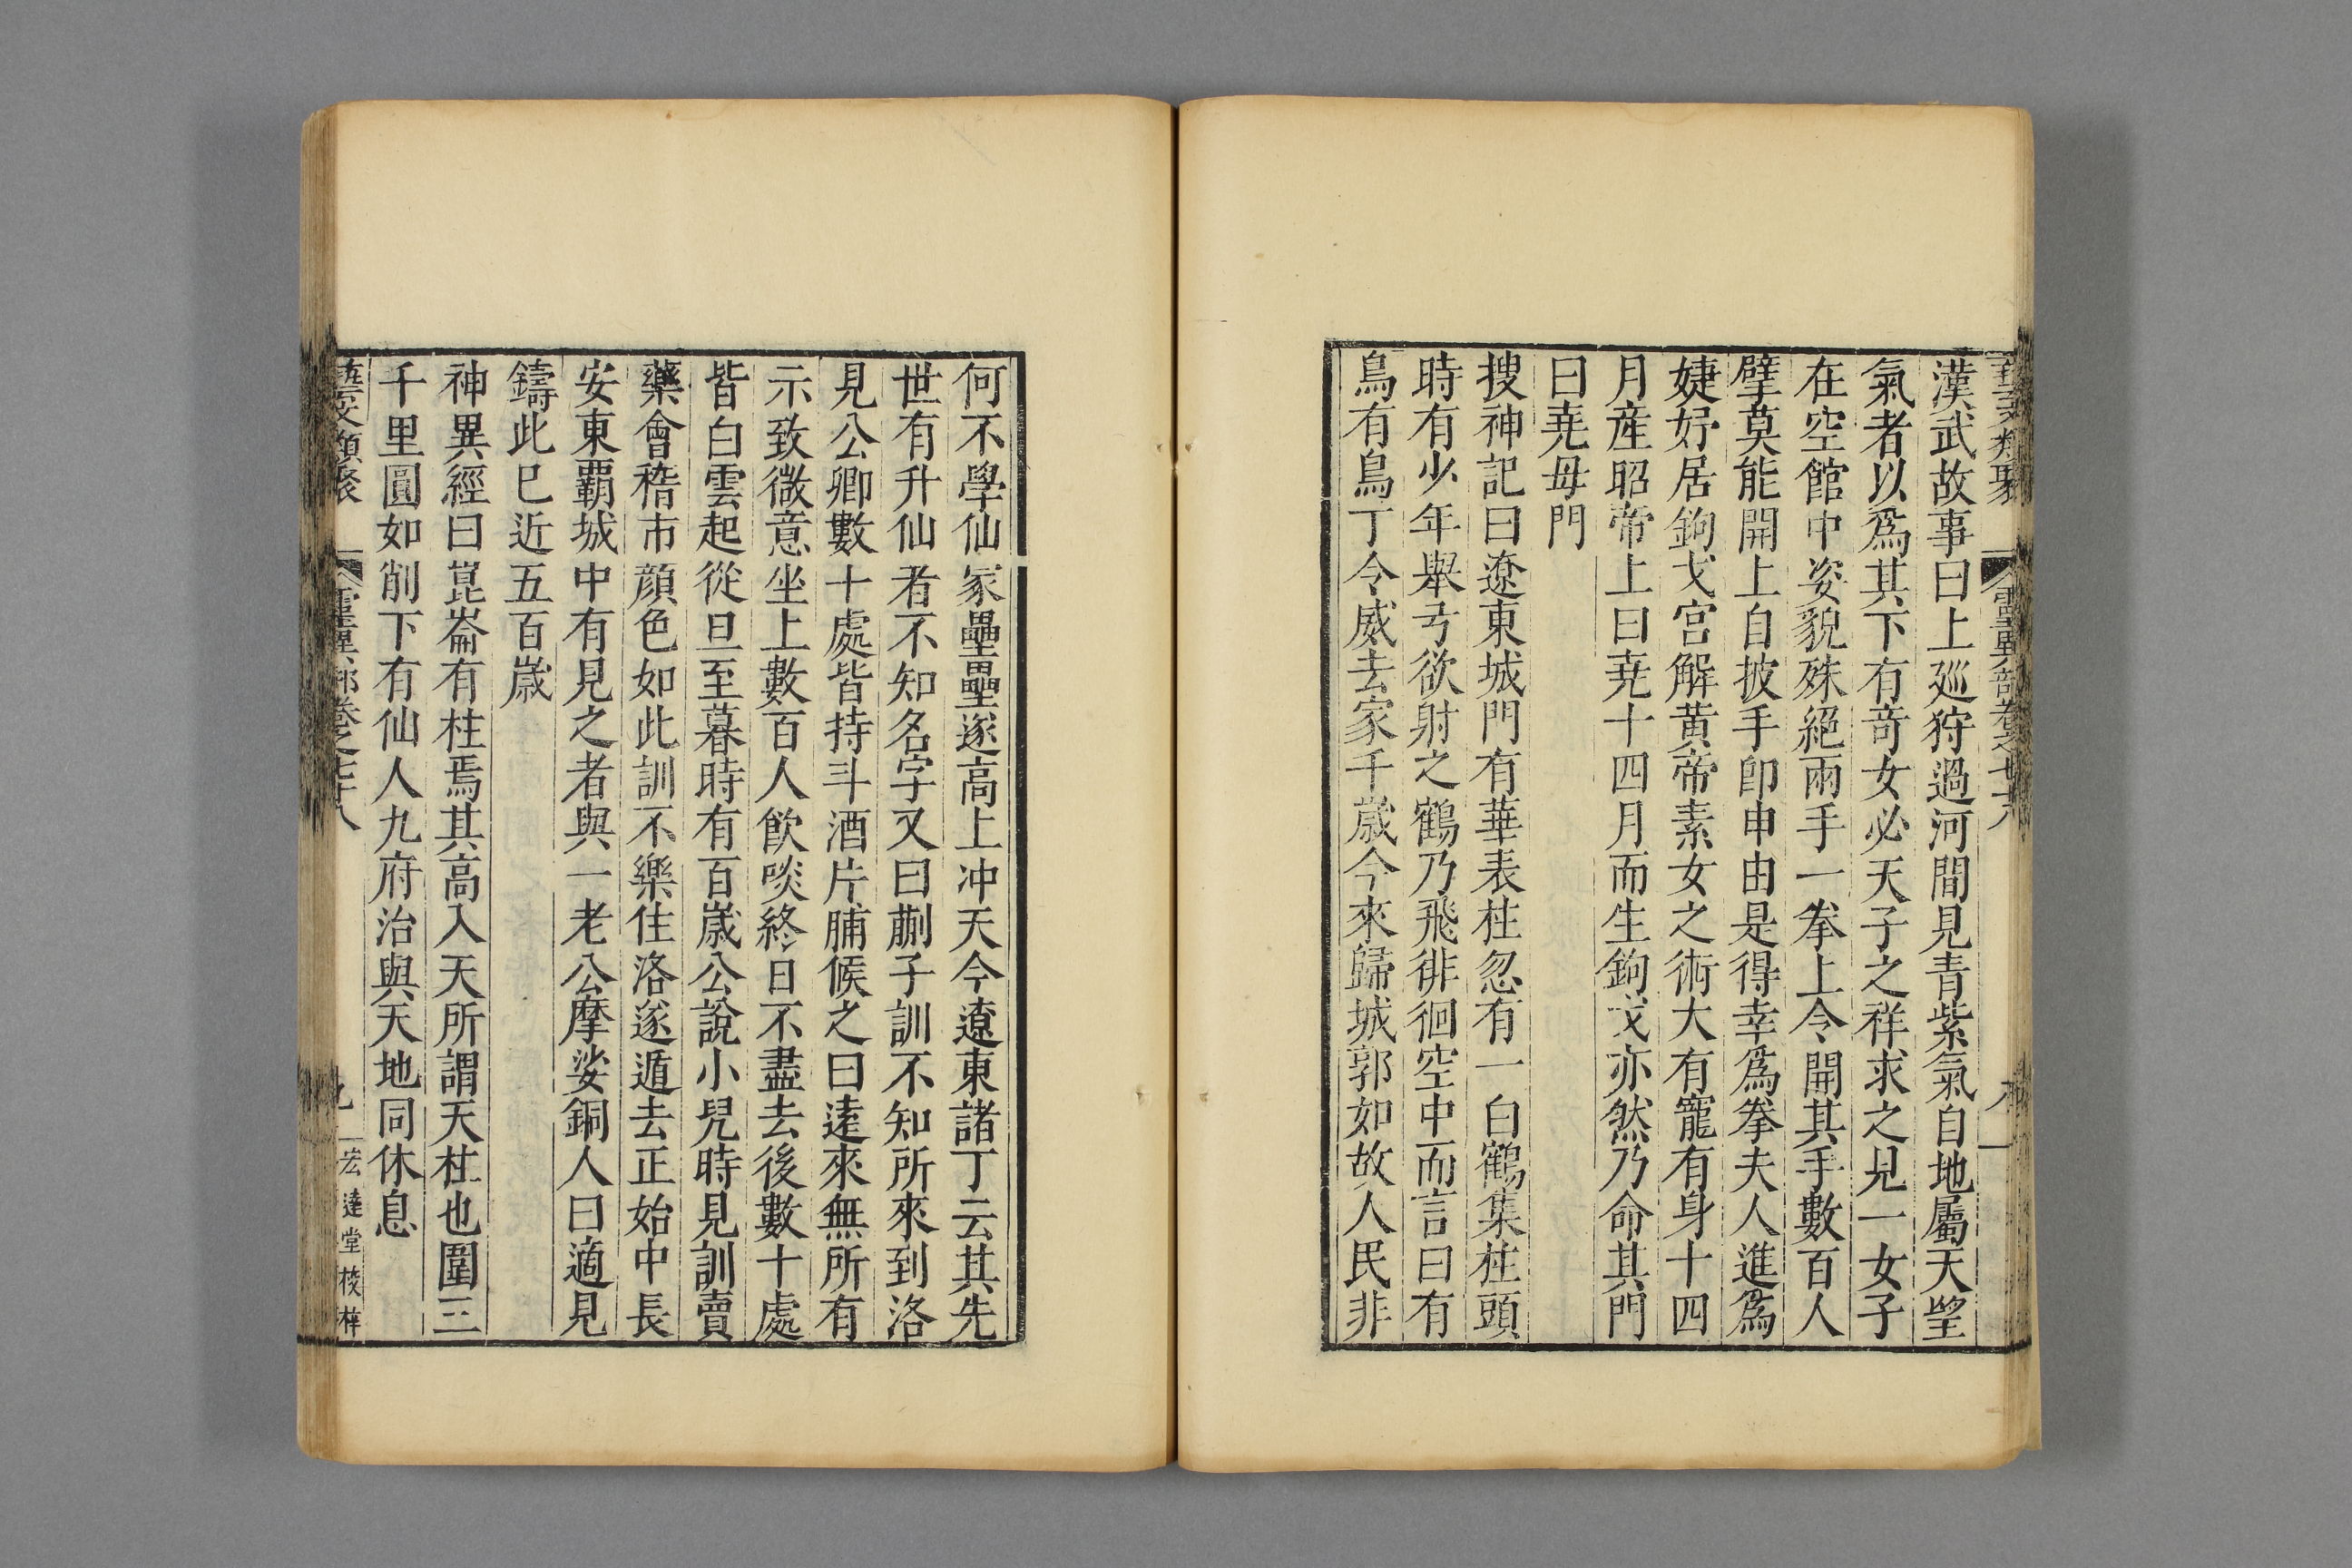 漢武故事曰上廵狩過河間見青紫氣自地屬天望
氣者以爲其下有竒女必天子之祥求之見一女子
在空館中姿貌殊絕兩手一拳上令開其手數百人
擘莫能開上自披手卽申由是得幸爲拳夫人進爲
婕妤居鉤弋宮解黃帝素女之術大有寵有身十四
月産昭帝上曰堯十四月而生鉤弋亦然乃命其門
曰堯母門
搜神記曰遼東城門有華表柱忽有一白鶴集柱頭
時有少年舉弓欲射之鶴乃飛徘徊空中而言曰有
鳥有鳥丁令威去家千歲今來歸城郭如故人民非
何不學仙冢壘壘遂高上冲天今遼東諸丁云其先
世有升仙者不知名字又曰蒯子訓不知所來到洛
見公卿數十處皆持斗酒片脯候之曰遠來無所有
示致微意坐上數百人飲啖終日不盡去後數十處
皆白雲起從旦至暮時有百歲公說小兒時見訓賣
藥會稽市顔色如此訓不樂住洛遂遁去正始中長
安東覇城中有見之者與一老公摩娑銅人曰適見
鑄此巳近五百歲
神異經曰崑崙有柱焉其高入天所謂天柱也圍三
千里圓如削下有仙人九府治與天地同休息
藝文類聚 靈異部卷之七十八 九 宏達堂校梓